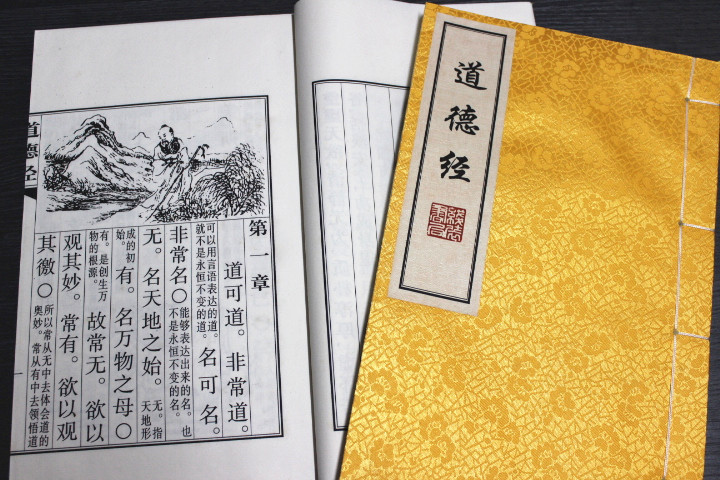 第一章
道可道。非常道。
可以用言语表达的道。
就不是永恒不变的道。
名可名。
非常名〇
能够表达出来的名。也
不是永恒不变的名。
无。名天地之始。
无。指
天地形
成的初
始。
有。名万物之母〇
有。是创生万
物的根源。
故常无。欲以
观其妙。常有。欲以观
其徼〇
所以常从无中去体会道的
奥妙。常从有中去领悟道
道德经
一
道德经